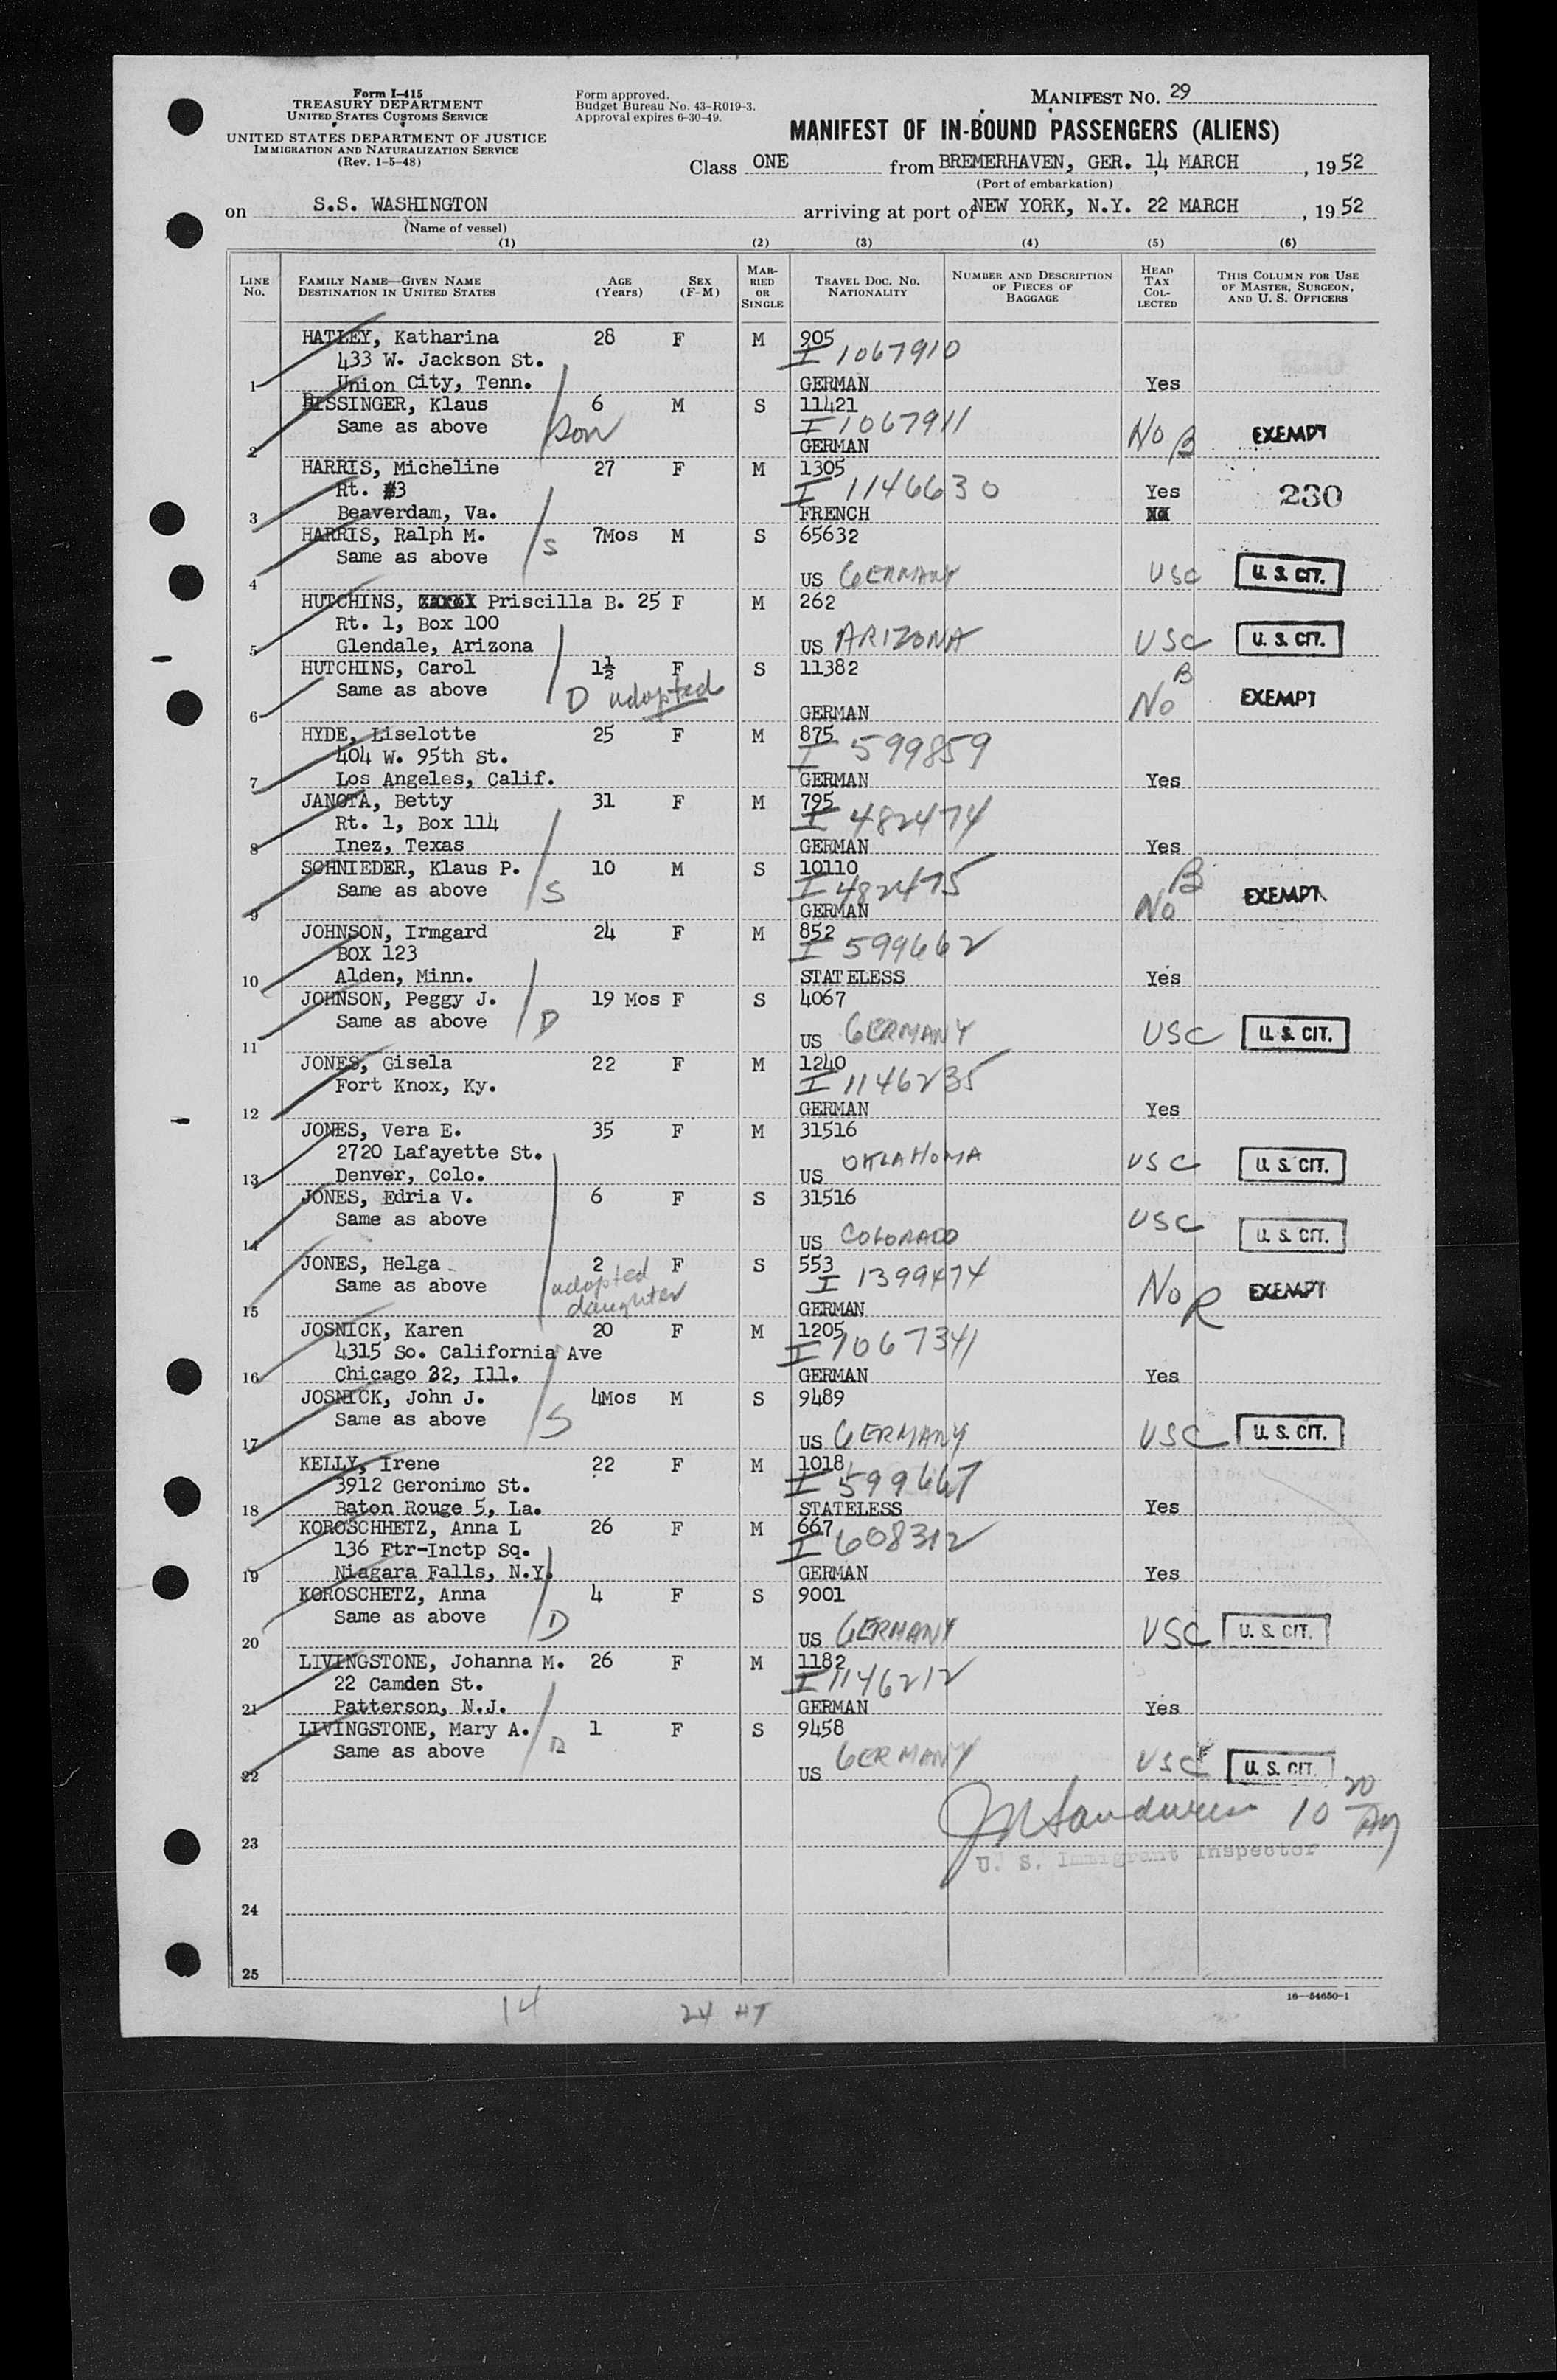 Form I-415
TREASURY DEPARTMENT
UNITED STATES CUSTOMS SERVICE
UNITED STATES DEPARTMENT OF JUSTICE
IMMIGRATION AND NATURALIZATION SERVICE
(Rev. 1-5-48)
Form approved.
Budget Bureau No. 43-R019-3.
Approval expires 6-30-49.
MANIFEST NO. 29
MANIFEST OF IN-BOUND PASSENGERS (ALIENS)
Class ONE from BREMERHAVEN, GER. 14 MARCH, 1952
(Port of embarkation)
on S.S. WASHINGTON arriving at port of NEW YORK, N.Y. 22 MARCH, 1952
(Name of vessel)
(1) (2) (3) (4) (5) (6)
LINE NO.
FAMILY NAME—GIVEN NAME
DESTINATION IN UNITED STATES
AGE (Years)
SEX (F-M)
MARRIED OR SINGLE
TRAVEL DOC. NO. NATIONALITY
NUMBER AND DESCRIPTION OF PIECES OF BAGGAGE
HEAD TAX COLLECTED
THIS COLUMN FOR USE OF MASTER, SURGEON, AND U. S. OFFICERS
HATLEY, Katharina 28 F M 905
433 W. Jackson St. I 1067910
1 Union City, Tenn. GERMAN Yes
BISSINGER, Klaus 6 M S 11421
Same as above Son I 1067911
2 GERMAN No B EXEMPT
HARRIS, Micheline 27 F M 1305
Rt. #3 I 1146630 Yes 230
3 Beaverdam, Va. FRENCH
HARRIS, Ralph M. 7Mos M S 65632
Same as above S
4 US GERMANY USC U. S. CIT.
HUTCHINS, Priscilla B. 25 F M 262
Rt. 1, Box 100
5 Glendale, Arizona US ARIZONA USC U. S. CIT.
HUTCHINS, Carol 1½ F S 11382
Same as above D adopted
6 GERMAN No B EXEMPT
HYDE, Liselotte 25 F M 875
404 W. 95th St. I 599859
7 Los Angeles, Calif. GERMAN Yes
JANOTA, Betty 31 F M 795
Rt. 1, Box 114 I 482474
8 Inez, Texas GERMAN Yes
SCHNIEDER, Klaus P. 10 M S 10110
Same as above S I 482475
9 GERMAN No B EXEMPT
JOHNSON, Irmgard 24 F M 852
BOX 123 I 599662
10 Alden, Minn. STATELESS Yes
JOHNSON, Peggy J. 19 Mos F S 4067
Same as above D
11 US GERMANY USC U. S. CIT.
JONES, Gisela 22 F M 1240
Fort Knox, Ky. I 1146235
12 GERMAN Yes
JONES, Vera E. 35 F M 31516
2720 Lafayette St.
13 Denver, Colo. US OKLAHOMA USC U. S. CIT.
JONES, Edria V. 6 F S 31516
Same as above
14 US COLORADO USC U. S. CIT.
JONES, Helga 2 F S 553
Same as above adopted daughter I 1399474
15 GERMAN No R EXEMPT
JOSNICK, Karen 20 F M 1205
4315 So. California Ave I 1067341
16 Chicago 32, Ill. GERMAN Yes
JOSNICK, John J. 4Mos M S 9489
Same as above S
17 US GERMANY USC U. S. CIT.
KELLY, Irene 22 F M 1018
3912 Geronimo St. I 599667
18 Baton Rouge 5, La. STATELESS Yes
KOROSCHHETZ, Anna L 26 F M 667
136 Ftr-Inctp Sq. I 608312
19 Niagara Falls, N.Y. GERMAN Yes
KOROSCHETZ, Anna 4 F S 9001
Same as above D
20 US GERMANY USC U. S. CIT.
LIVINGSTONE, Johanna M. 26 F M 1182
22 Camden St. I 1146212
21 Patterson, N.J. GERMAN Yes
LIVINGSTONE, Mary A. 1 F S 9458
Same as above D
22 US GERMANY USC U. S. CIT.
10 20 AM
23 U. S. Immigrant Inspector
24
25
16—54650-1
14 24 HT